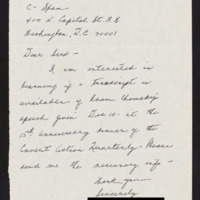 C-Span
400 N Capitol St. N.W
Washington, D.C 20001
Dear Sirs-
I am interested in
learning if a transcript is
available of Noam Chomsky's
speech from Dec 10. at the
15th anniversary dinner of the
Covert Action Quarterly. Please
send me the necessary info-
Thank you
Sincerely